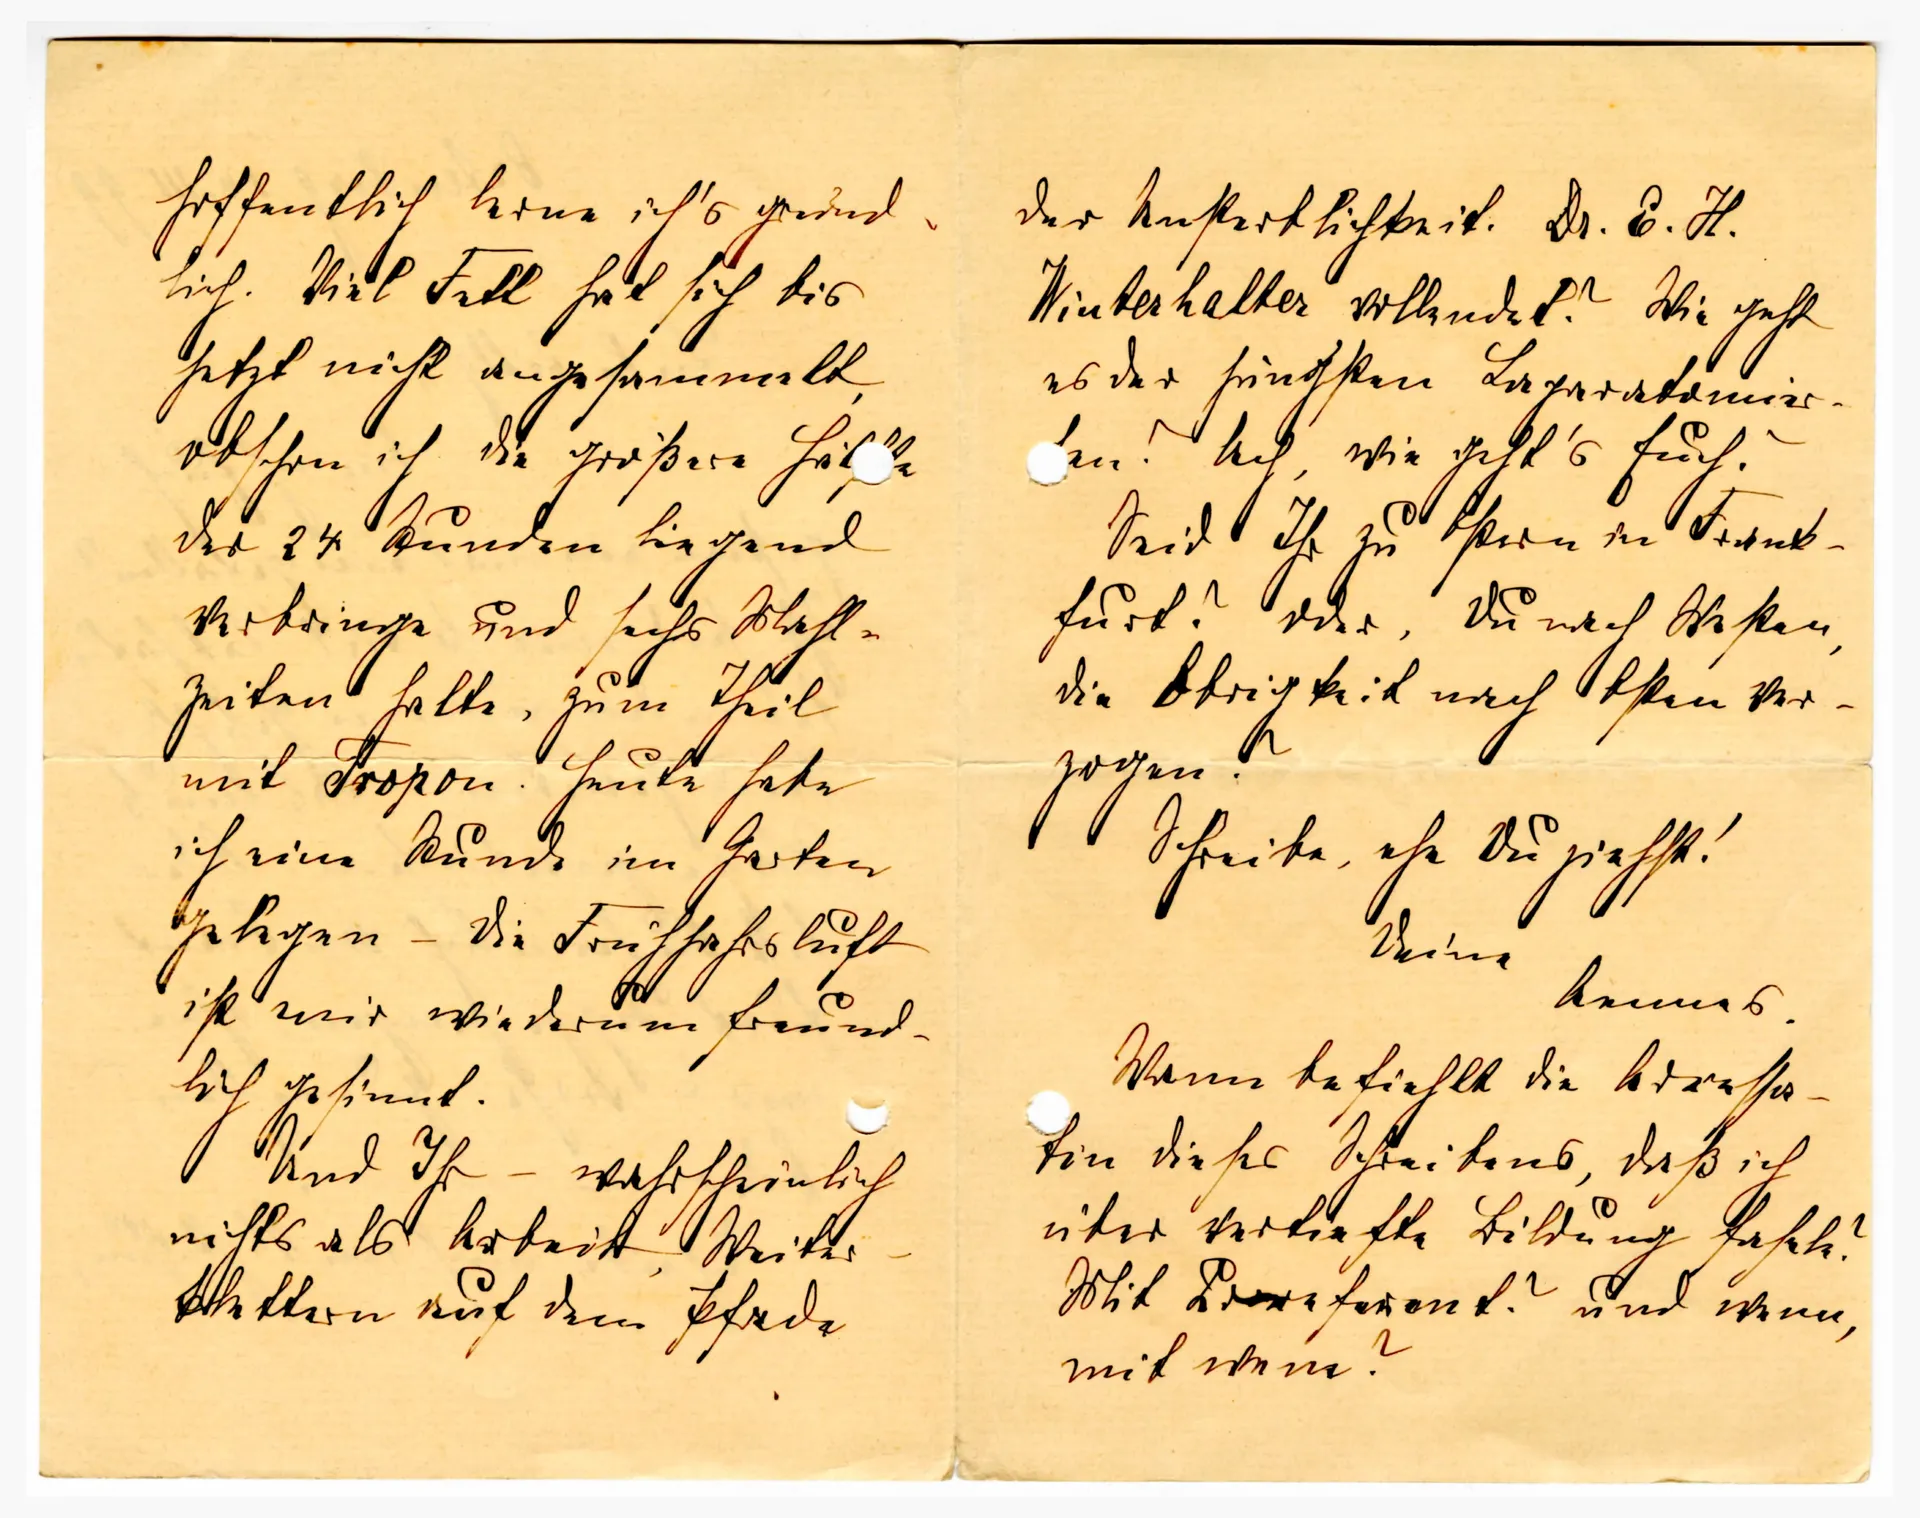 hoffentlich lerne ich's gründ-
lich. Viel Fett hat sich bis
jetzt nicht angesammelt,
obschon ich die größere Hälfte
der 24 Stunden liegend
verbringe und sechs Mahl-
zeiten halte, zum Theil
mit Tropon. Heute habe
ich eine Stunde im Garten
gelegen – die Frühjahrsluft
ist mir wiederum freund-
lich gesinnt.
Und Ihr – wahrscheinlich
nichts als Arbeit, Weiter-
klettern auf dem Pfade
der Unsterblichkeit. Dr. E. H.
Winterhalter vollendet? Wie geht
es der jüngsten Laparatomir-
ten? Ach, wie geht's Euch?
Seid Ihr zu Ostern in Frank-
furt? Oder, Du nach Westen,
die Obrigkeit nach Osten ver-
zogen?
Schreibe, ehe Du ziehst!
Deine
Aennes.
Wann befiehlt die Adressa-
tin dieses Schreibens, daß ich
über vertiefte Bildung fasele?
Mit Correferent? und wenn,
mit wem?